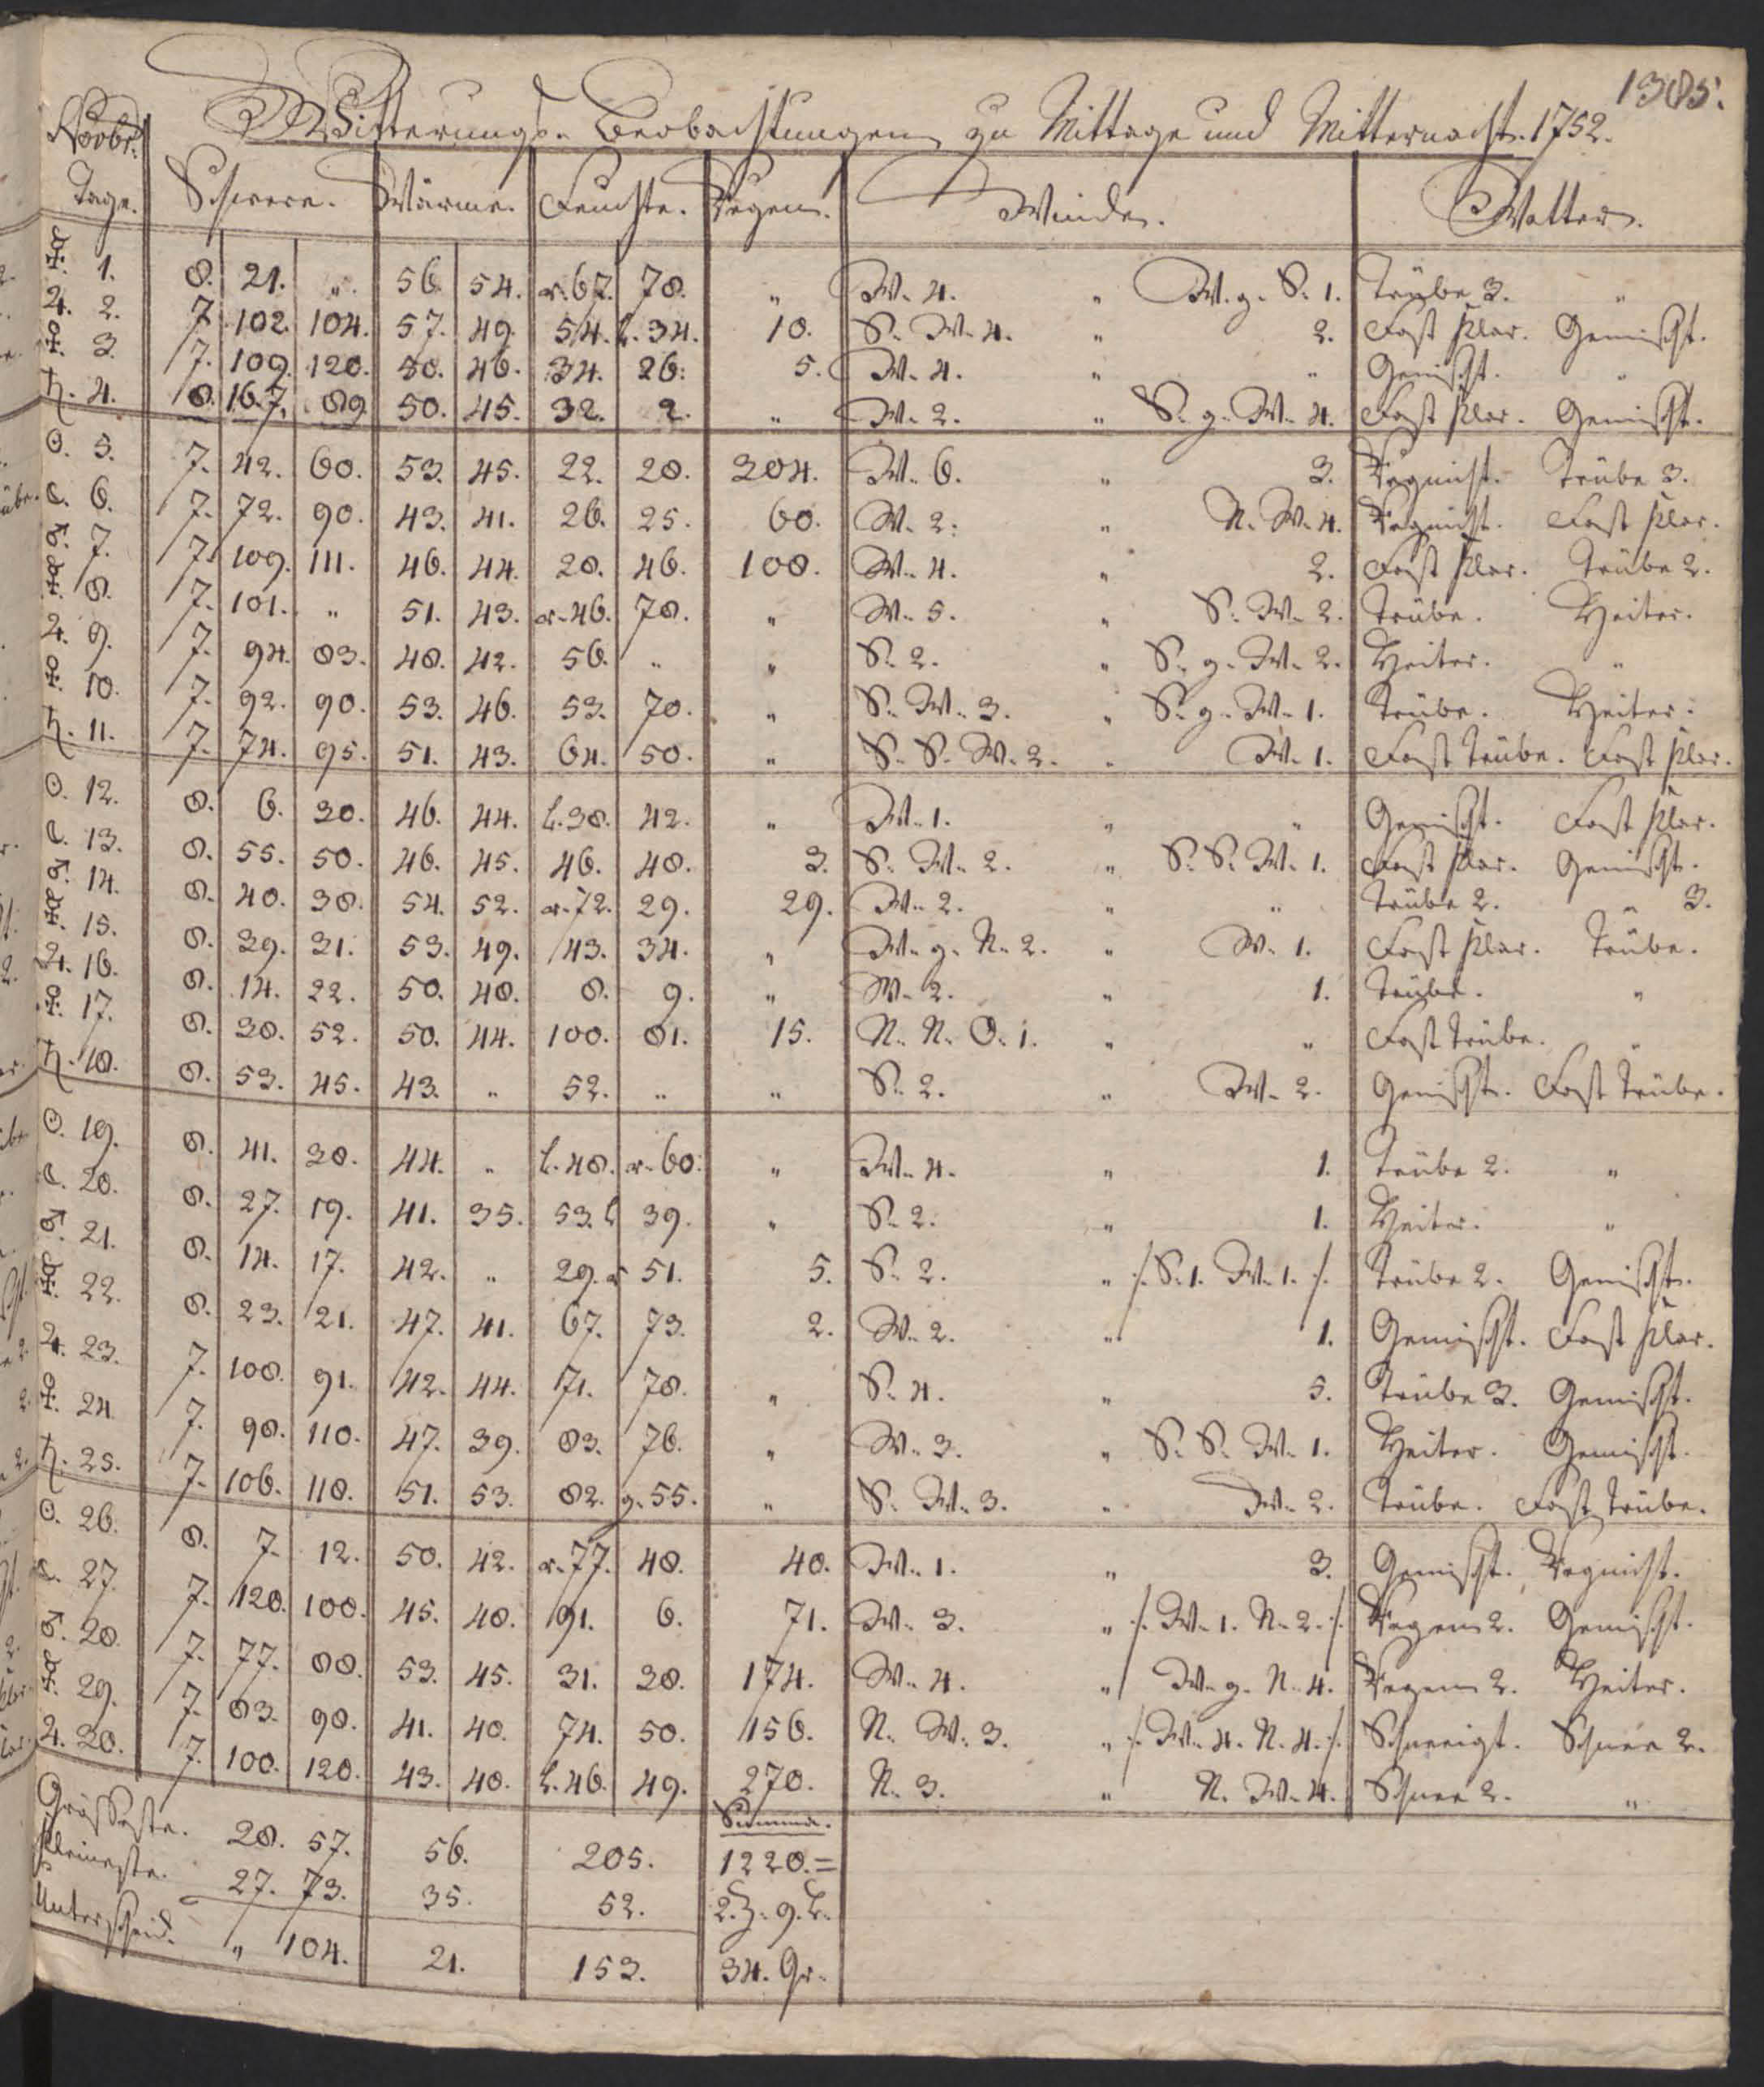 1385.
Novbr. Witterungs-Beobachtungen zu Mittage und Mitternacht. 1752.
Tage. Schwere. Wärme. Feuchte. Regen. Winde. Wetter.
☿. 1. 8. 21. „ 56. 54. r. 67. 78. „ W. 4. „ W. g. S. 1. Trübe 3. „
♃. 2. 7. 102. 104. 57. 49. 54. l. 34. 10. S. W. 4. „ 2. Fast klar. Gemischt.
♀. 3. 7. 109. 120. 50. 46. 34. 26. 5. W. 4. „ „ Gemischt. „
♄. 4. 8. 16. 7. 89. 50. 45. 32. 2. „ W. 2. „ S. g. W. 4. Fast klar. Gemischt.
☉. 5. 7. 42. 60. 53. 45. 22. 28. 304. W. 6. „ 3. Regnicht. Trübe 3.
☾. 6. 7. 72. 90. 43. 41. 26. 25. 60. W. 2. „ N. W. 4. Regnicht. Fast klar.
♂. 7. 7. 109. 111. 46. 44. 28. 46. 108. W. 4. „ 2. Fast klar. Trübe 2.
☿. 8. 7. 101. „ 51. 43. r. 46. 78. „ W. 5. „ S. W. 2. Trübe. Heiter.
♃. 9. 7. 94. 83. 48. 42. 56. „ „ S. 2. „ S. g. W. 2. Heiter. „
♀. 10. 7. 92. 90. 53. 46. 53. 70. „ S. W. 3. „ S. g. W. 1. Trübe. Heiter.
♄. 11. 7. 74. 95. 51. 43. 64. 50. „ S. S. W. 2. „ W. 1. Fast Trübe. Fast klar.
☉. 12. 8. 6. 30. 46. 44. l. 38. 42. „ W. 1. „ „ Gemischt. Fast klar.
☾. 13. 8. 55. 50. 46. 45. 46. 48. 3. S. W. 2. „ S. S. W. 1. Fast klar. Gemischt.
♂. 14. 8. 40. 38. 54. 52. r. 72. 29. 29. W. 2. „ „ Trübe 2. „ 3.
☿. 15. 8. 39. 31. 53. 49. 43. 34. „ W. g. N. 2. „ W. 1. Fast klar. Trübe.
♃. 16. 8. 14. 22. 50. 48. 8. 9. „ W. 2. „ 1. Trübe. „
♀. 17. 8. 38. 52. 50. 44. 100. 81. 15. N. N. O. 1. „ „ Fast Trübe. „
♄. 18. 8. 53. 45. 43. „ 52. „ „ S. 2. „ W. 2. Gemischt. Fast Trübe.
☉. 19. 8. 41. 38. 44. „ l. 48. r. 60. „ W. 4. „ 1. Trübe 2. „
☾. 20. 8. 27. 19. 41. 35. 53. l 39. „ S. 2. „ 1. Heiter. „
♂. 21. 8. 14. 17. 42. „ 29. r 51. 5. S. 2. „ /. S. 1. W. 1. /. Trübe 2. Gemischt.
☿. 22. 8. 23. 21. 47. 41. 67. 73. 2. W. 2. „ 1. Gemischt. Fast klar.
♃. 23. 7. 108. 91. 42. 44. 71. 78. „ S. 4. „ 5. Trübe 3. Gemischt.
♀. 24. 7. 98. 110. 47. 39. 83. 76. „ W. 3. „ S. S. W. 1. Heiter. Gemischt.
♄. 25. 7. 106. 118. 51. 53. 82. g. 55. „ S. W. 3. „ W. 2. Trübe. Fast Trübe.
☉. 26. 8. 7. 12. 50. 42. r. 77. 48. 40. W. 1. „ 3. Gemischt. Regnicht.
☾. 27. 7. 120. 100. 45. 48. 91. 6. 71. W. 3. „ /. W. 1. N. 2. /. Regen 2. Gemischt.
♂. 28. 7. 77. 88. 53. 45. 31. 38. 174. W. 4. „ W. g. N. 4. Regen 2. Heiter.
☿. 29. 7. 83. 98. 41. 40. 74. 50. 156. N. W. 3. „ /. W. 4. N. 4. /. Schneeigt. Schnee 2.
♃. 30. 7. 100. 120. 43. 40. l. 46. 49. 270. N. 3. „ N. W. 4. Schnee 2. „
Summa.
Grösseste. 28. 57. 56. 205. 1220. =
Kleineste. 27. 73. 35. 52. 2. Z. 9. L.
Unterscheid. „ 104. 21. 153. 34. Gr.